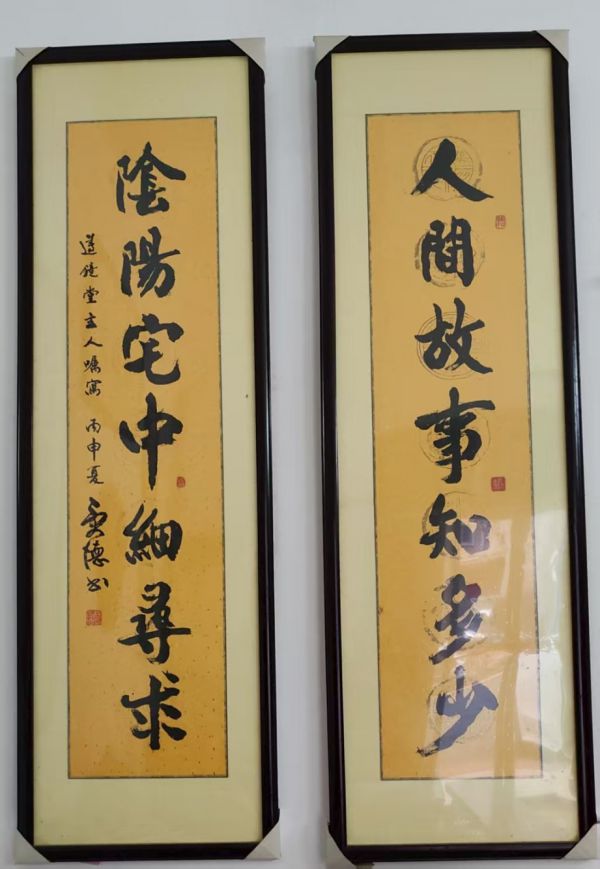 人間故事知多少
陰陽宅中細尋求
道鏡堂主人囑寫 丙申夏 德书